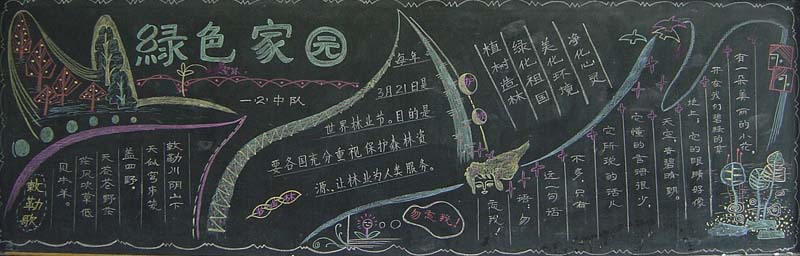 綠色家园
一(2)中队
敕勒歌
敕勒川阴山下
天似穹庐笼
盖四野。
天苍苍野茫
茫风吹草低
见牛羊。
每年
3月21日是
世界林业节。目的是
要各国充分重视保护森林资
源、让林业为人类服务。
植树造林
绿化祖国
美化环境
净化心灵
有一朵美丽的小花,
开在我们碧绿的草
地上,它的眼睛好像
天空,青碧晴朗。
它懂的言语很少,
它所说的话儿
不多,只有
这一句话
语:勿
忘我!
勿忘我!